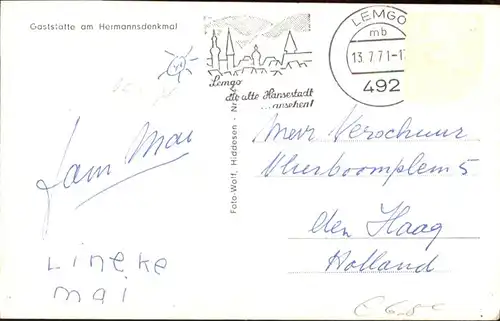 Gaststätte am Hermannsdenkmal
Lemgo
die alte Hansestadt
...ansehen!
LEMGO
mb
13.7.71-1
492
Foto-Wolf, Hiddesen - Nr.
fam Mai
Lineke
mai
Mevr Verschuur
5
den Haag
Holland